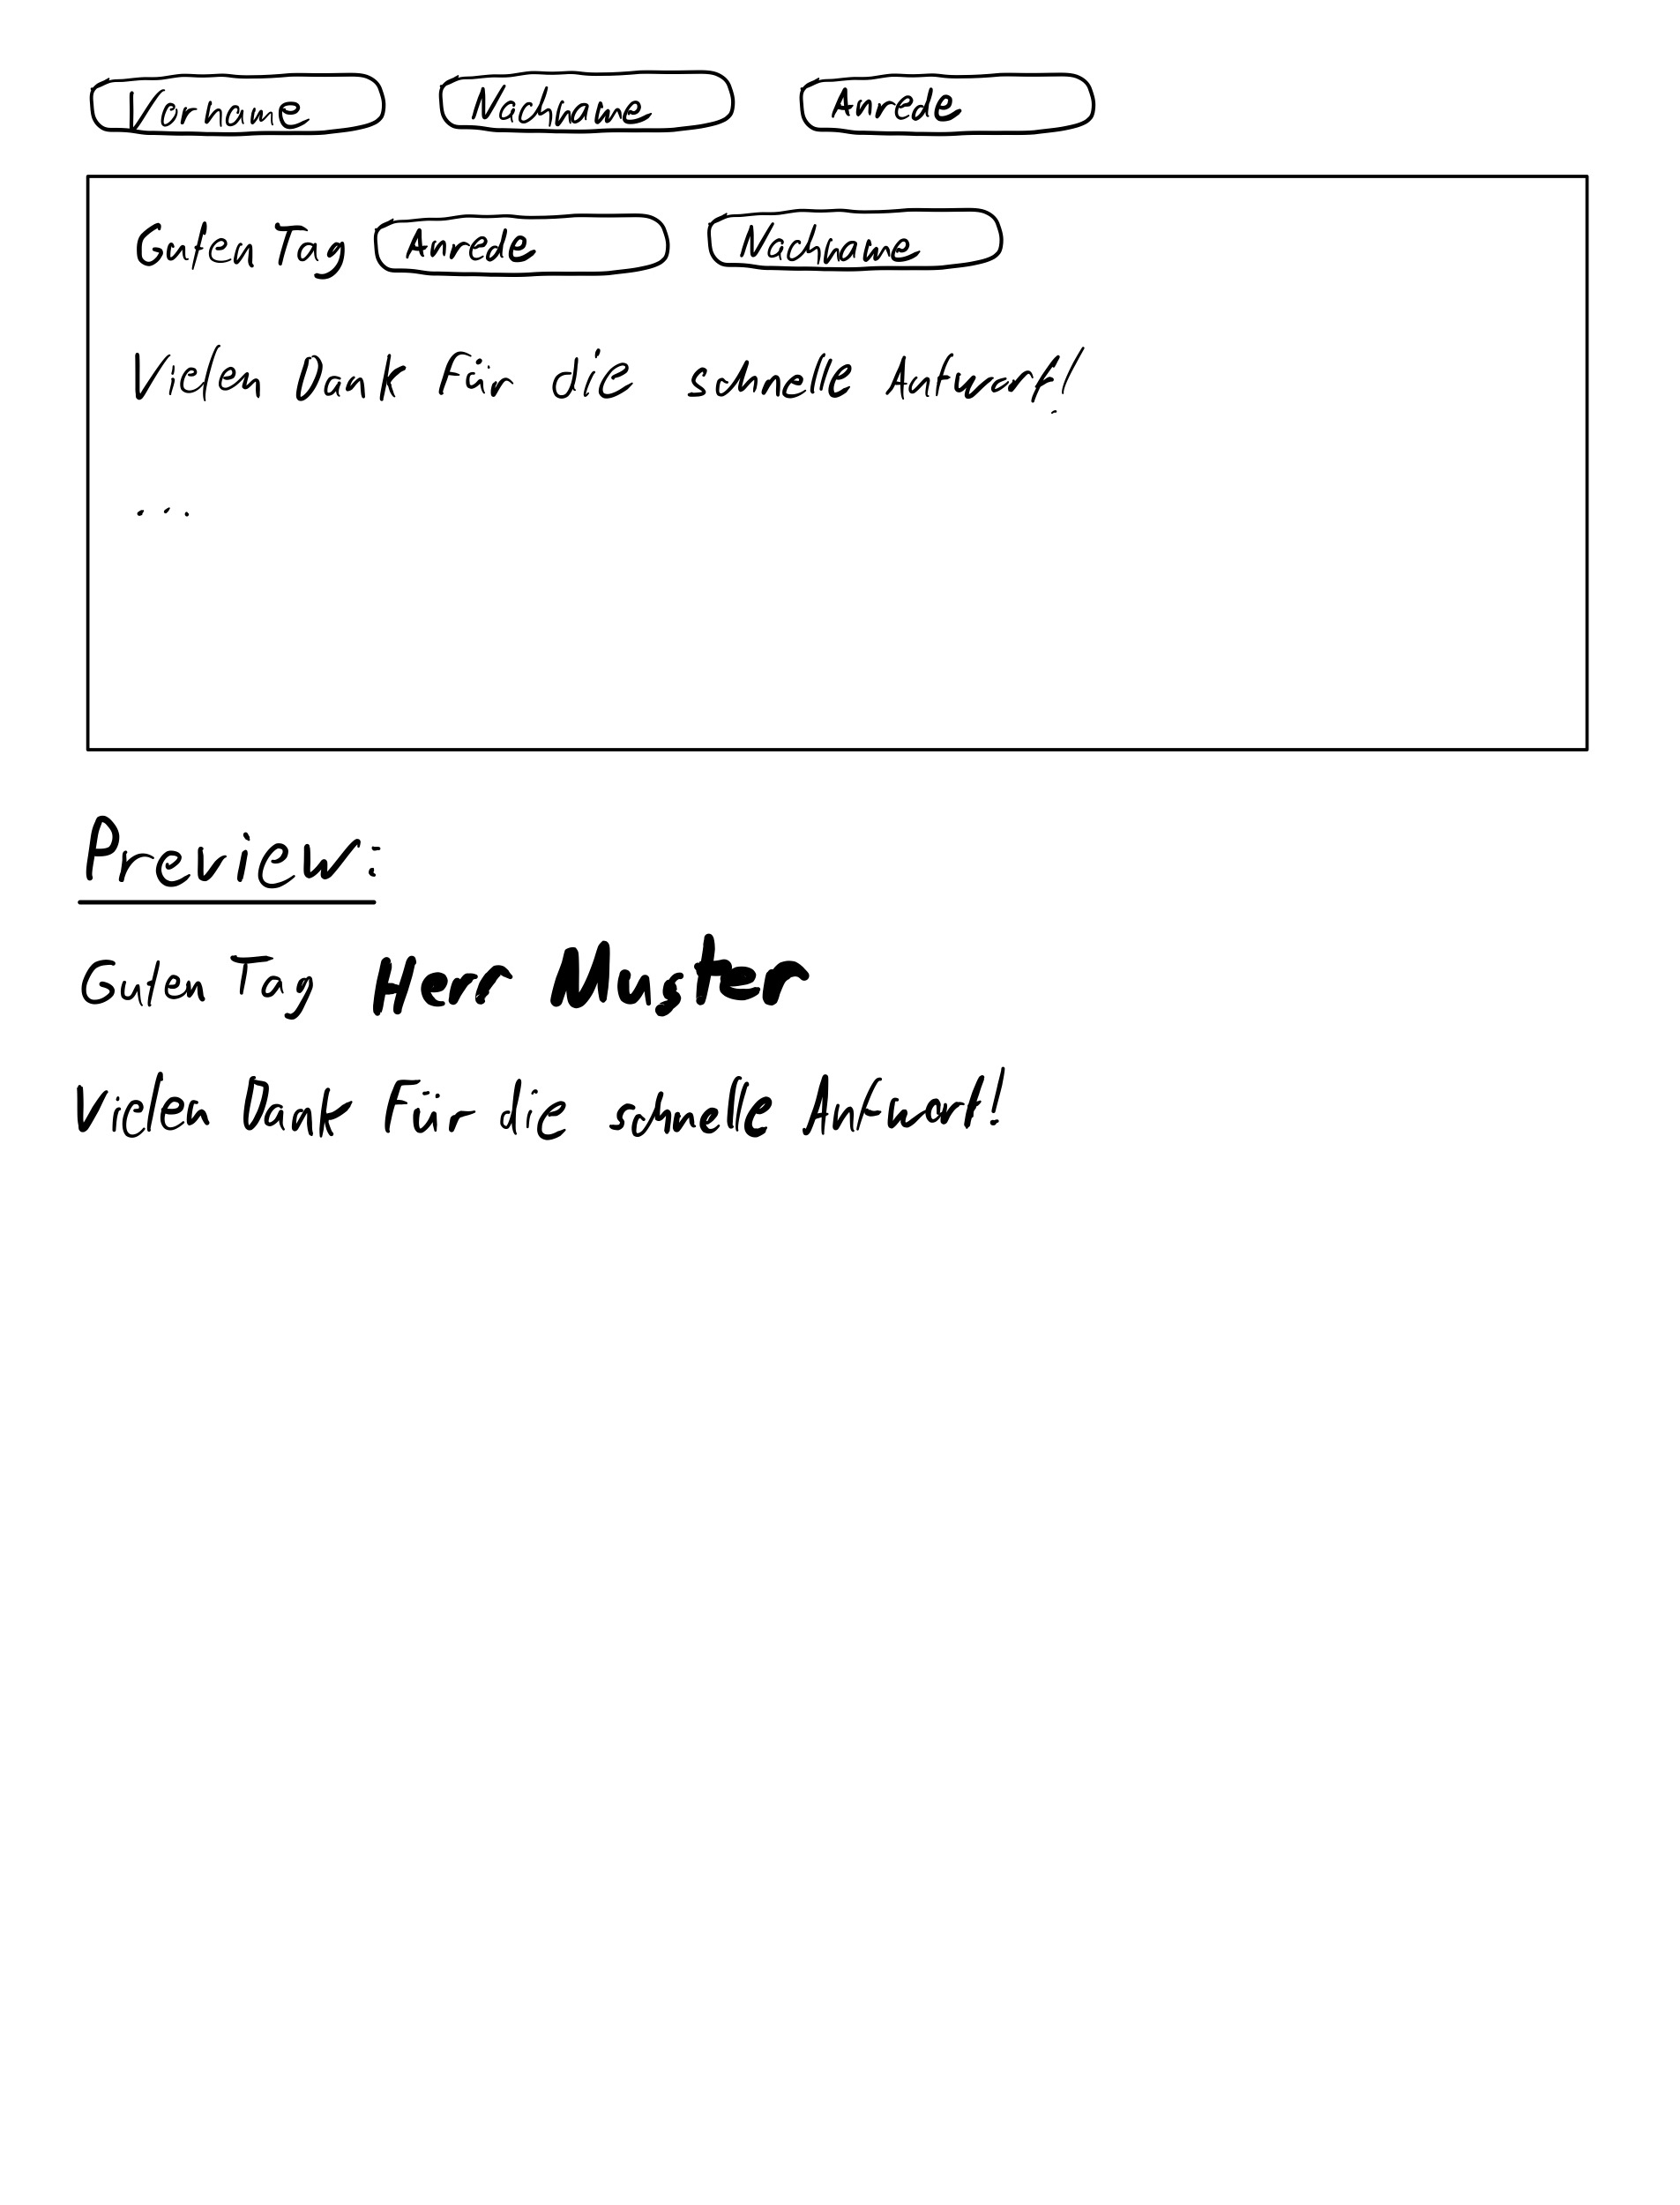 Vorname Nachname Anrede
Guten Tag Anrede Nachname
Vielen Dank für die schnelle Antwort!
...
Preview:
Guten Tag Herr Muster
Vielen Dank Für die schnelle Antwort!